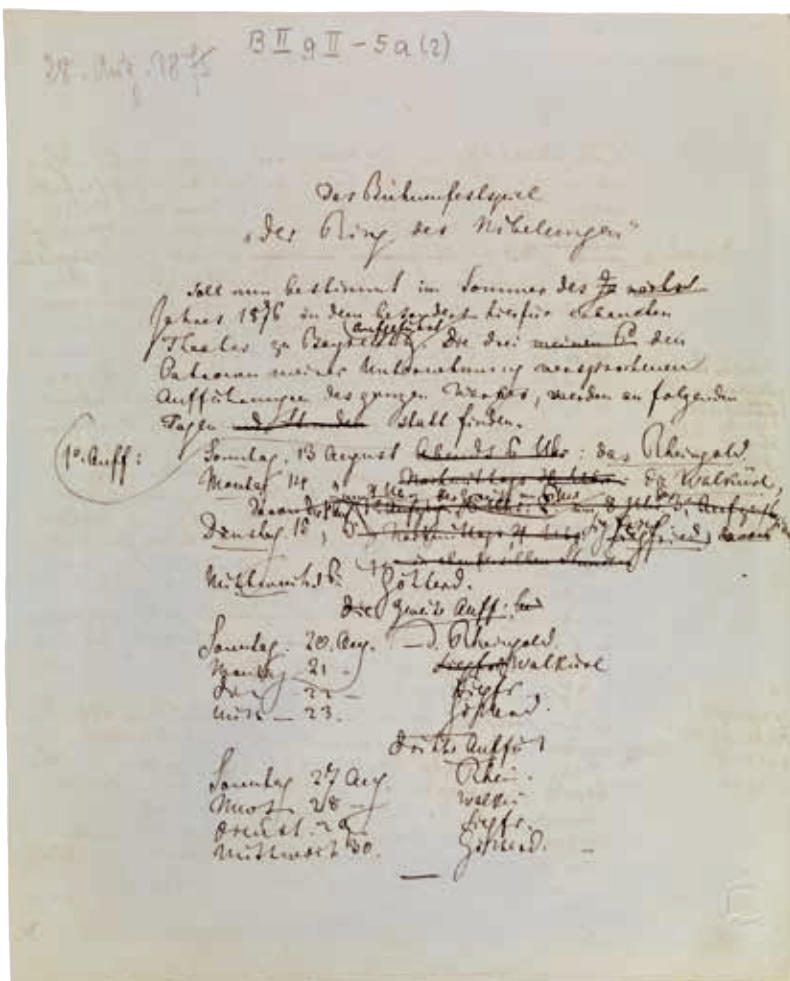 B II g II - 5a (2)
28. Aug. 1875
Das Bühnenfestspiel
„Der Ring des Nibelungen"
soll nun bestimmt im Sommer des nächst
Jahres 1876 in dem besonders hierfür erbauten
Theater zu Bayreuth aufgeführt. Die drei meinen den
Patronen meiner Unternehmung versprochenen
Aufführungen des ganzen Werkes, werden an folgenden
Tagen statt finden.
1e. Auff: Sonntag, 13 August Abends 6 Uhr: das Rheingold.
Montag 14, Nachmittags die Walküre,
Dienstag 15, Nachmittags 4 Siegfried,
Mittwoch 16. Götterd.
Die zweite Auff:
Sonntag. 20. Aug. — d. Rheingold
Montag 21 — Siegfr Walküre
Die 22 — Siegfr.
Mitt — 23. Götterd.
Dritte Auffü
Sonntag 27 Aug. Rhein.
Mont 28 — Walkü
Dienst. 29. Siegfr.
Mittwoch 30. Götterd. —